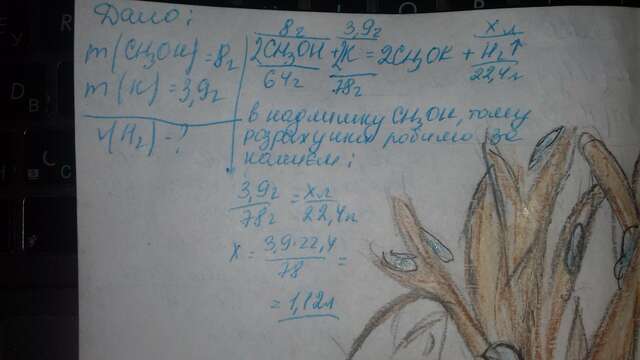 Дано:
m(CH3OH)=8г
m(K)=3,9г
V(H2)-?
8г 3,9г x л
2CH3OH + 2K = 2CH3OK + H2↑
64г 78г 22,4л
в надлишку CH3OH, тому
розрахунки робимо за
калієм:
3,9г/78г = xл/22,4л
x = 3,9·22,4/78 =
= 1,12л